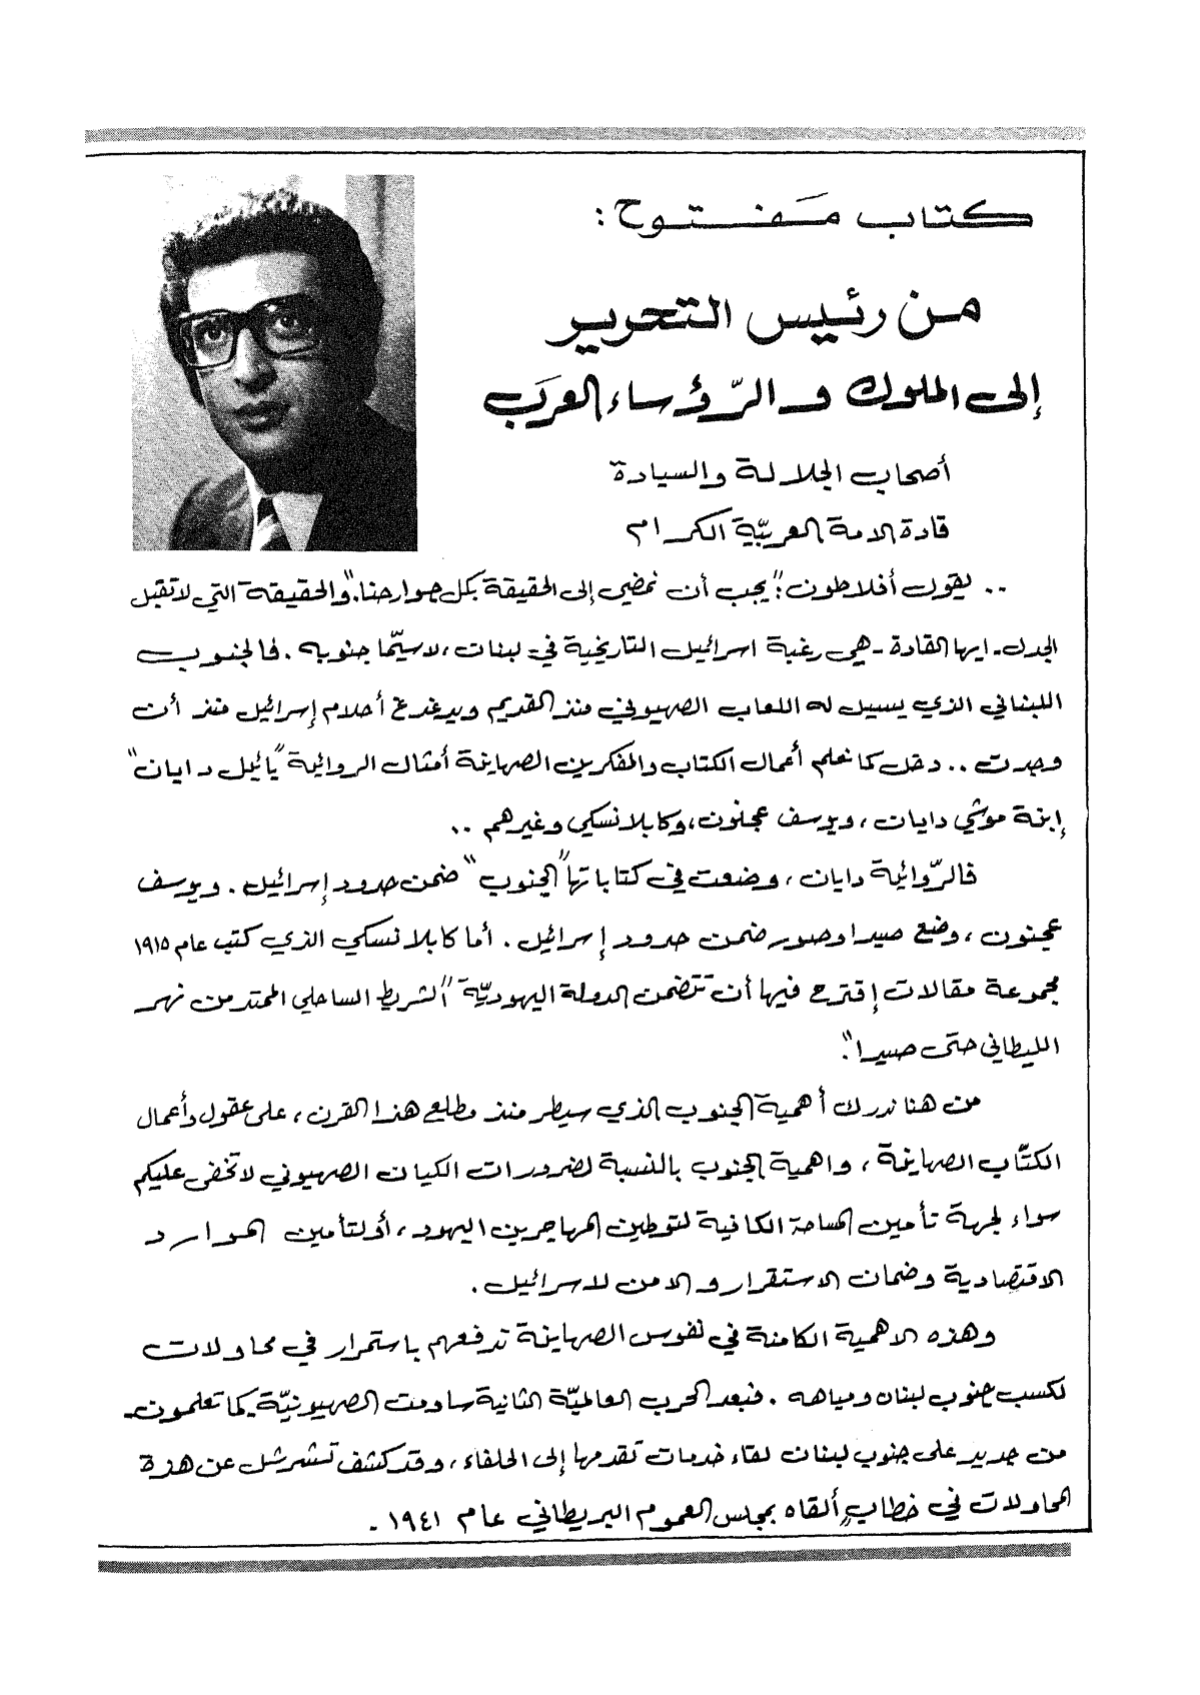 كتاب مَفتوح :
من رئيس التحرير
إلى الملوك والرّؤساء العرَب
أصحاب الجلالة والسيادة
قادة الامة العربيّة الكرام
.. يقول أفلاطون :"يجب أن نمضي إلى الحقيقة بكل جوارحنا". والحقيقة التي لا تقبل
الجدل - ايها القادة - هي رغبة اسرائيل التاريخية في لبنان ، لا سيّما جنوبه . فالجنوب
اللبناني الذي يسيل له اللعاب الصهيوني منذ القديم ويدغدغ أحلام إسرائيل منذ أن
وجدت .. دخل كما نعلم أعمال الكتاب والمفكرين الصهاينة أمثال الروائية "يائيل دايان"
إبنة موشي دايان ، ويوسف عجنون ، وكابلانسكي وغيرهم ..
فالرّوائية دايان ، وضعت في كتاباتها "الجنوب" ضمن حدود إسرائيل . ويوسف
عجنون ، وضع صيدا وصور ضمن حدود إسرائيل . أما كابلانسكي الذي كتب عام ١٩١٥
مجموعة مقالات إقترح فيها أن تتضمن الدولة اليهوديّة "الشريط الساحلي الممتد من نهر
الليطاني حتى صيدا".
من هنا ندرك أهمية الجنوب الذي سيطر منذ مطلع هذا القرن ، على عقول وأعمال
الكتّاب الصهاينة ، واهمية الجنوب بالنسبة لضرورات الكيان الصهيوني لا تخفى عليكم
سواء لجهة تأمين المساحة الكافية لتوطين المهاجرين اليهود ، أو لتأمين الموارد
الاقتصادية وضمان الاستقرار والامن لاسرائيل .
وهذه الاهمية الكامنة في نفوس الصهاينة تدفعهم باستمرار في محاولات
لكسب جنوب لبنان ومياهه . فبعد الحرب العالميّة الثانية ساومت الصهيونيّة - كما تعلمون -
من جديد على جنوب لبنان لقاء خدمات تقدمها إلى الحلفاء ، وقد كشف تشرشل عن هذه
المحاولات في خطابٍ ألقاه بمجلس العموم البريطاني عام ١٩٤١ -